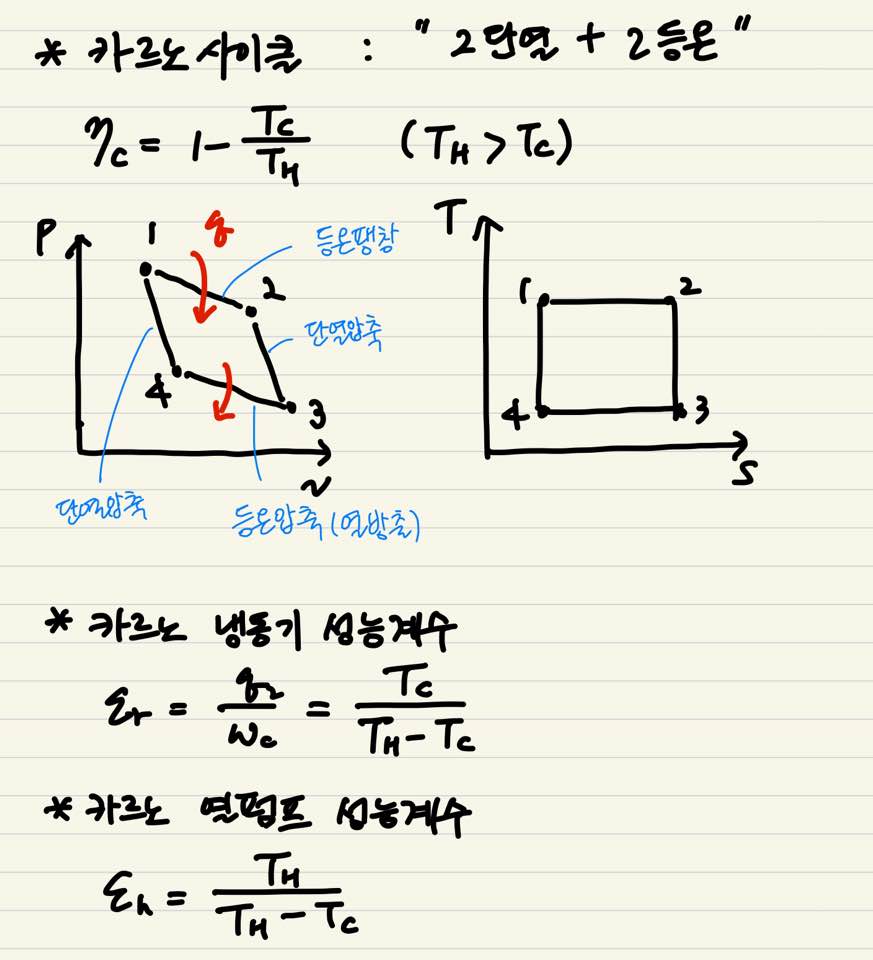 * 카르노 사이클 : " 2단열 + 2등온 "
η_c = 1 - T_C / T_H (T_H > T_C)
P
1
q
등온팽창
2
단열압축
4
3
v
단열압축
등온압축(열방출)
T
1
2
4
3
S
* 카르노 냉동기 성능계수
ε_r = q_2 / w_c = T_C / (T_H - T_C)
* 카르노 열펌프 성능계수
ε_h = T_H / (T_H - T_C)